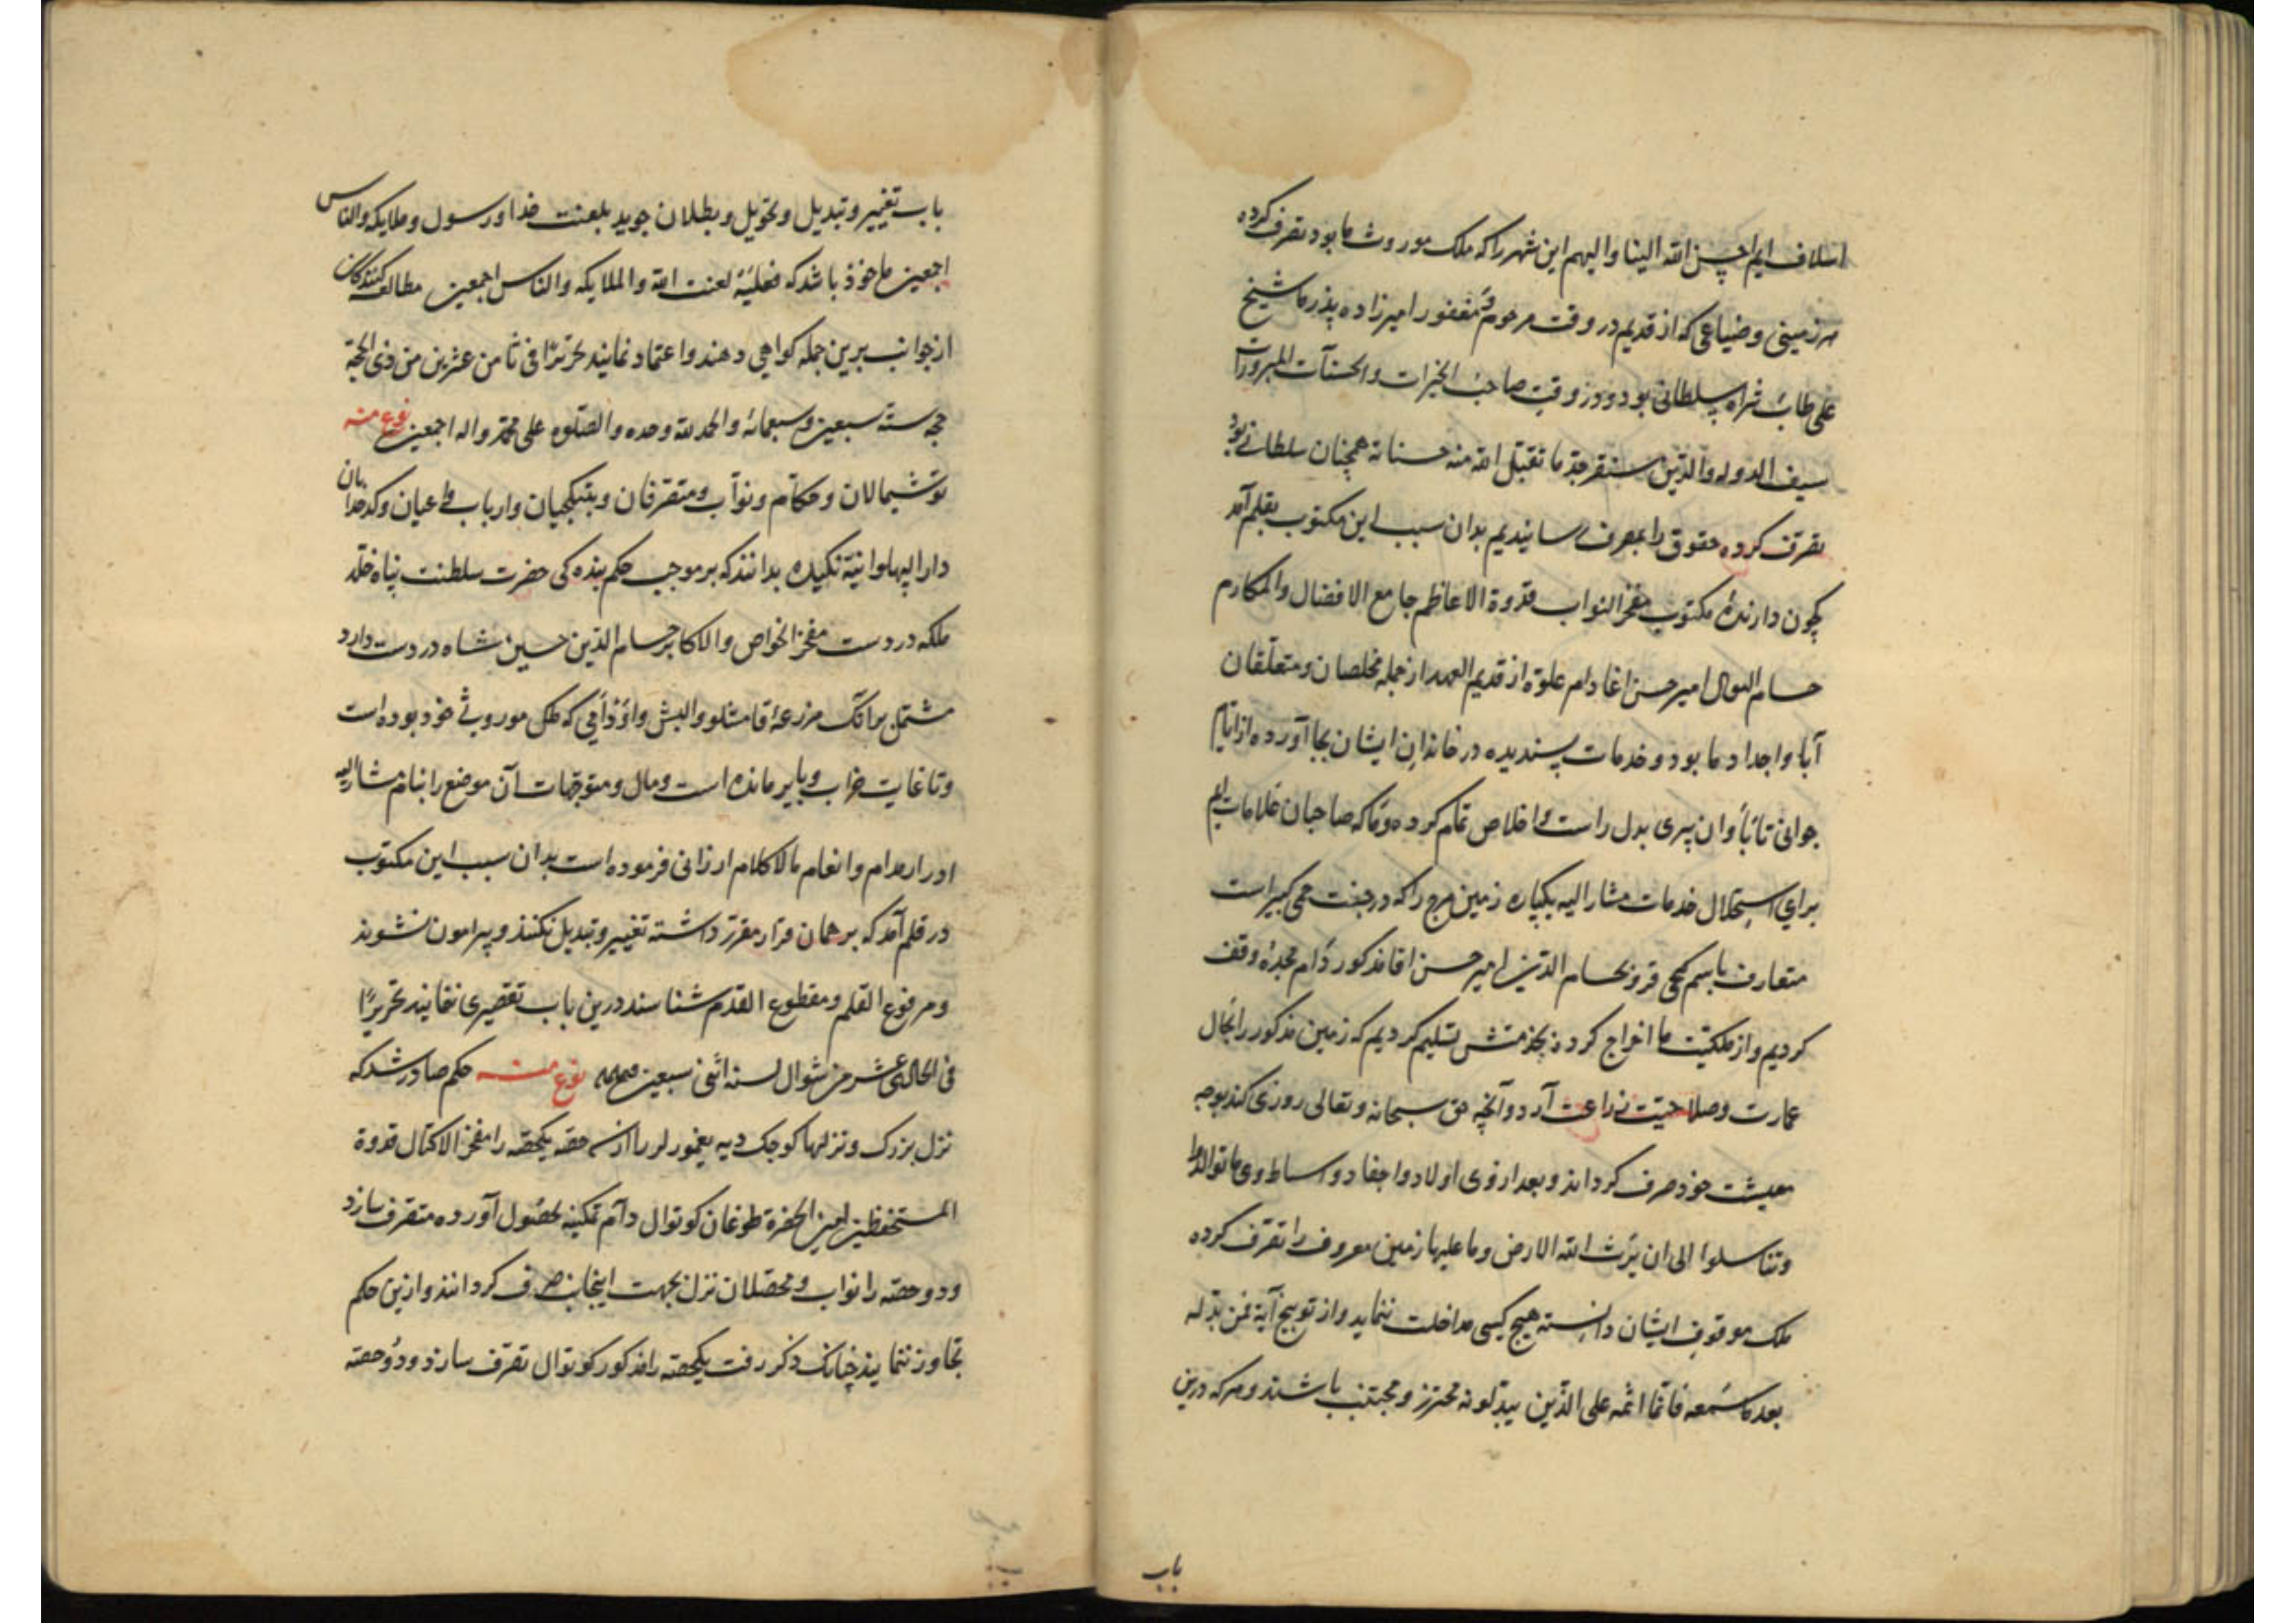 اسلاف ایم احسن الله الینا والیهم این شهر را که ملک موروث ما بود تصرف کرده
هر زمینی و ضیاعی که از قدیم در وقت مرحوم مغفور امیرزاده پذر ما شیخ
علی طاب ثراه سلطانی بود و در وقت صاحب الخیرات والحسنات المبرورات
سیف الدوله والدین سنقر جد ما تقبل الله منه حسناته همچنان سلطانی بود
تصرف کرده حقوق را بمصرف رسانیدیم بدان سبب این مکتوب بقلم آمد
چون دارندهٔ مکتوب مفخر النواب قدوة الاعاظم جامع الافضال والمکارم
حسام امیر حسن اغا دام علوه از قدیم العهد از جمله مخلصان و متعلقان
آبا و اجداد ما بود و خدمات پسندیده در خاندان ایشان بجا آورده از ایام
جوانی تا باوان پیری بدل راست و اخلاص تمام کرده و ما که صاحبان علامات ایم
برای استحلال خدمات مشار الیه یکپاره زمین مرج را که در جنت کبیر است
متعارف باسم بحسام الدین امیر حسن اقا مذکور دام مجده وقف
کردیم و از ملکیت ما اخراج کرده بخدمتش تسلیم کردیم که زمین مذکور را بحال
عمارت و صلاحیت زراعت آرد و آنچه حق سبحانه و تعالی روزی کند بوجه
معیشت خود صرف کرداند و بعد از وی اولاد و احفاد و اسباط وی ما توالدوا
وتناسلوا الی ان یرث الله الارض وما علیها زمین معروف را تصرف کرده
ملک موقوف ایشان دانسته هیچ کسی مداخلت ننماید و از توبیخ آیة فمن بدله
بعد ما سمعه فانما اثمه علی الذین یبدلونه محترز و مجتنب باشند و هر که درین
باب
باب تغییر و تبدیل و تحویل و بطلان جوید بلعنت خدا و رسول و ملایکه والناس
اجمعین ماخوذ باشد که فعلیه لعنت الله والملایکه والناس اجمعین مطالعه کنندکان
از جوانب برین جمله کواهی دهند و اعتماد نمایند تحریرا فی ثامن عشرین من ذی الحجة
حجه سنه سبعین و سبعمائه والحمد لله وحده والصلوه علی محمد واله اجمعین نوع منه
توشیمالان و حکام و نواب و متصرفان و بتیکجیان وارباب و اعیان و کدخدایان
دارا پهلوانیة بدانند که بر موجب حکم بنده کی حضرت سلطنت پناه خلد
ملکه در دست مفخر الخواص والاکابر حسام الدین حسین شاه در دست دارد
مشتمل بر آنک مزرعهٔ که ملک موروثی خود بوده است
و تا غایت خراب و بایر مانده است و مال و متوجهات آن موضع را بنام مشار الیه
ادرار مدام و انعام مالا کلام ارزانی فرموده است بدان سبب این مکتوب
در قلم آمد که بر همان قرار مقرر داشته تغییر و تبدیل نکنند و پیرامون نشوند
و مرفوع القلم و مقطوع القدم شناسند درین باب تقصیری ننمایند تحریرا
فی الحادی عشر من شوال لسنه اثنی سبعین نوع منه حکم صادر شد که
نزل بزرک و نزلها کوجک دیه از سه حصه یکحصه را مفخر الاکفال قدوة
المستحفظین امین الحضرة طوغان کوتوال دام تمکینه بحصول آورده متصرف سازد
و دو حصه را نواب و محصلان نزل بجهت اینجانب صرف کردانند و ازین حکم
تجاوز ننمایند چنانک ذکر رفت یکحصه را مذکور کوتوال تصرف سازد و دو حصه